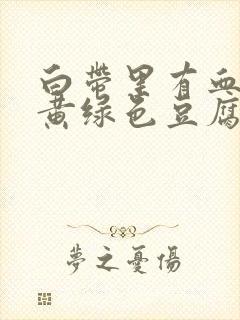 白带里有血
黄绿色豆腐
夢之憂傷